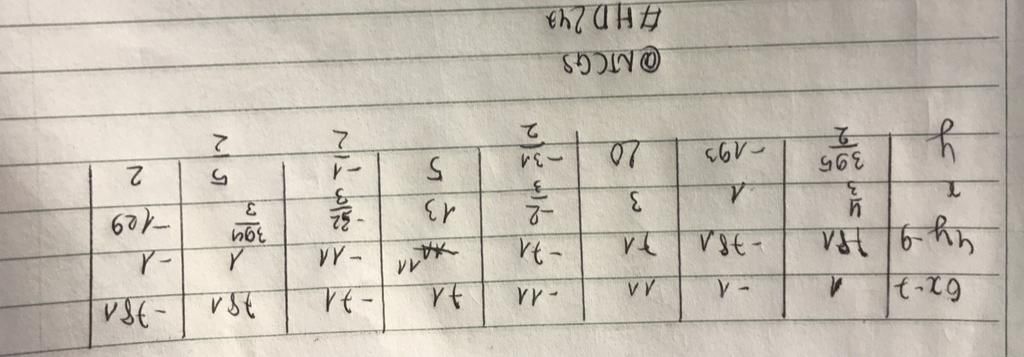 6x-7 1 -1 11 -11 71 -71 781 -781
4y-9 781 -781 71 -71 11 -11 1 -1
x 4/3 1 3 -2/3 13 -32/3 394/3 -129
y 395/2 -193 20 -31/2 5 -1/2 5/2 2
@NTCGS